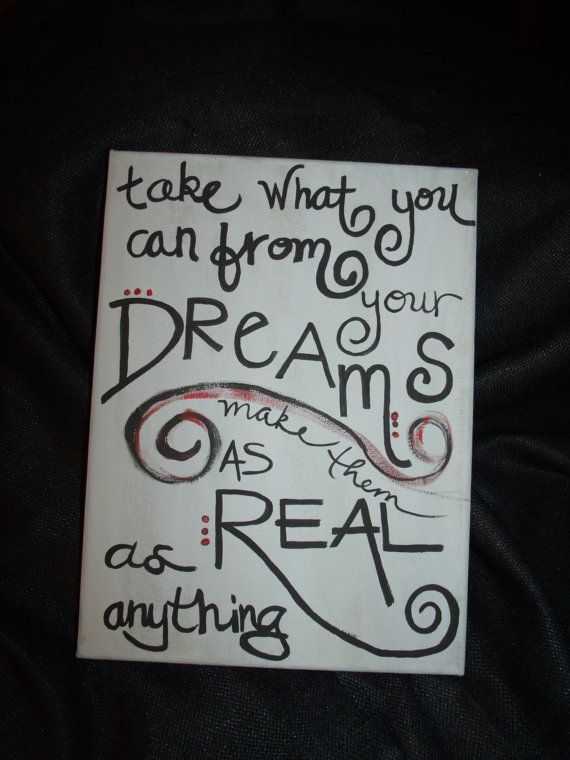 take what you
can from
your
DREAMS
make them
AS
REAL
as
anything